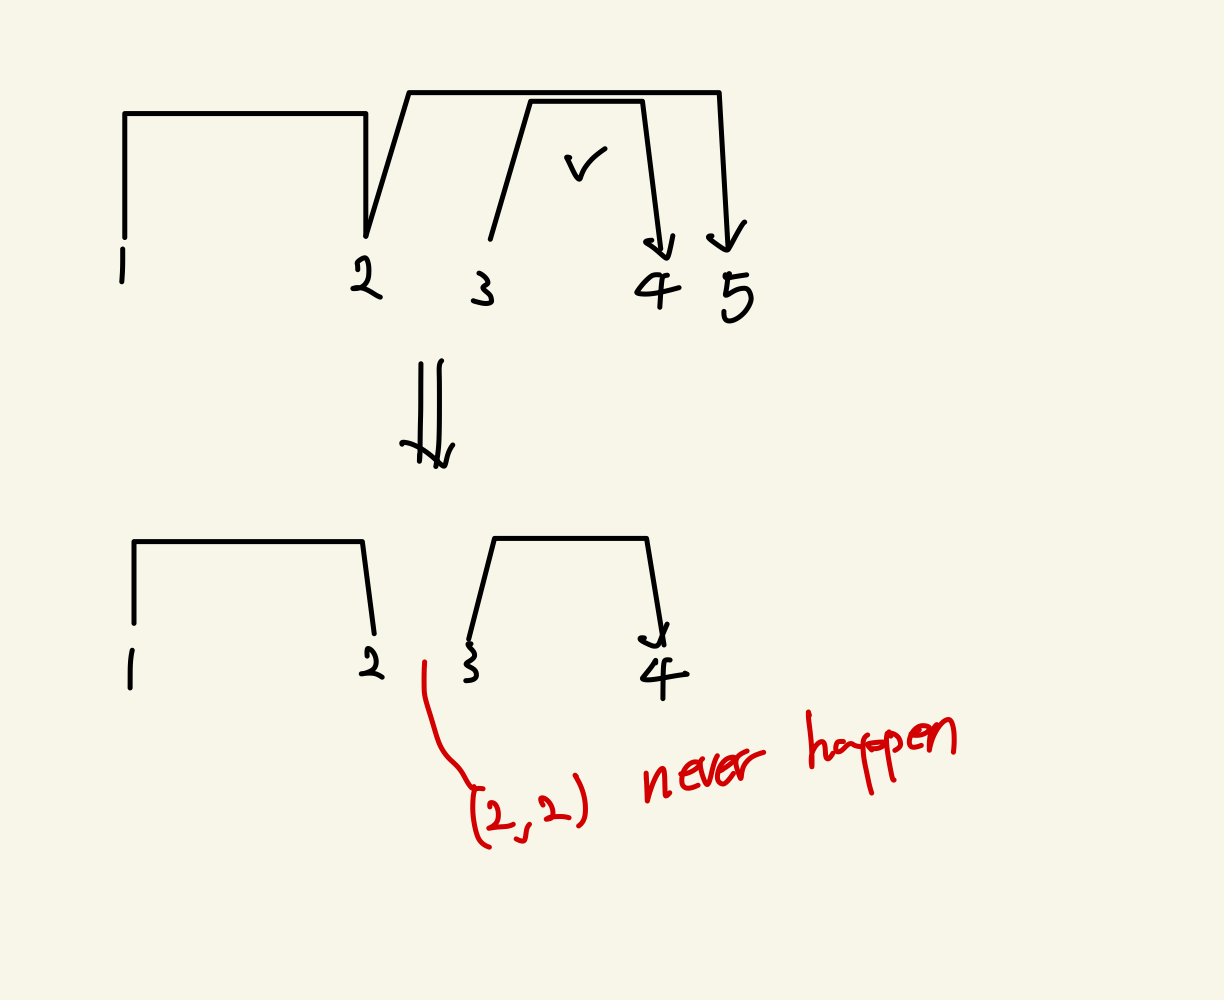 1 2 3 4 5
1 2 3 4
(2,2) never happen